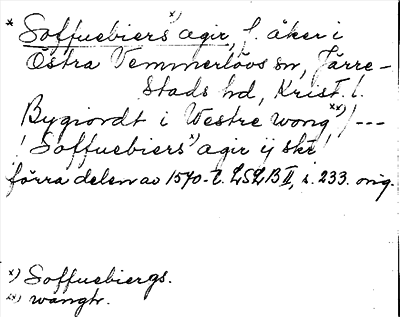 * Soffuebiers x) agir, f. åker i
Östra Vemmerlövs sn, Järre-
stads hd, Krist. l.
Bygiordt i Westre wong xx) / ---
/ Soffuebiers x) agir ij skr /
förra delen av 1570-t. LSLB II, s. 233. orig.
x) Soffuebiergs.
xx) wangtr.